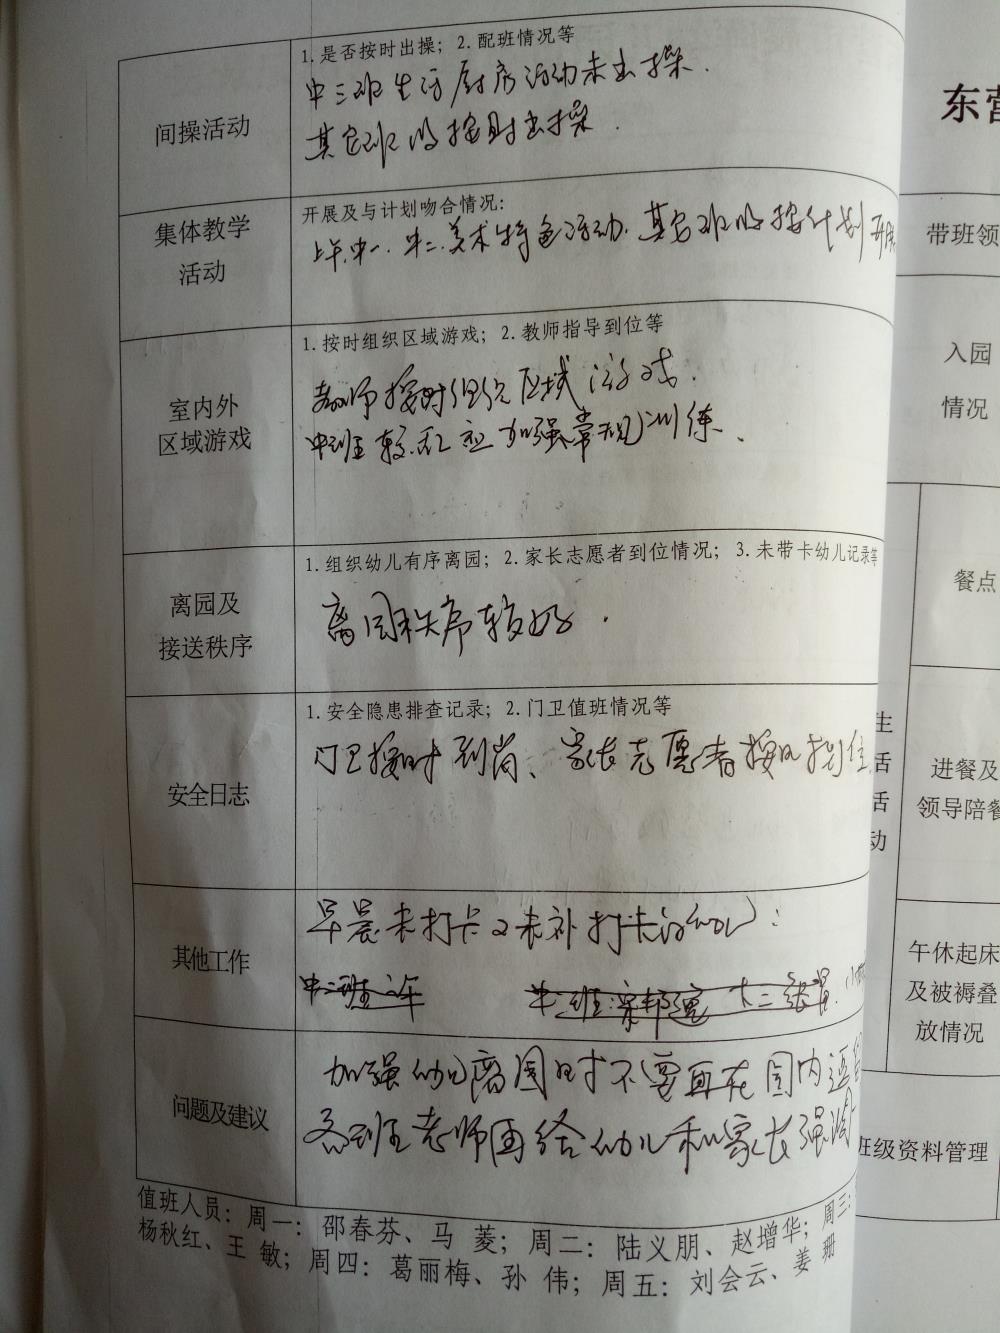 间操活动
1. 是否按时出操；2. 配班情况等
中三班生活厨房活动未出操.
其它班均按时出操.
集体教学
活动
开展及与计划吻合情况：
上午.中一.中二.美术特色活动.其它班均按计划开展
室内外
区域游戏
1. 按时组织区域游戏；2. 教师指导到位等
教师按时组织区域游戏.
中班较乱应加强常规训练、
离园及
接送秩序
1. 组织幼儿有序离园；2. 家长志愿者到位情况；3. 未带卡幼儿记录等
离园秩序较好.
安全日志
1. 安全隐患排查记录；2. 门卫值班情况等
门卫按时到岗、家长志愿者按时到位
其他工作
早晨未打卡又未补打卡的幼儿：
中二班
问题及建议
加强幼儿离园时不要再在园内逗留
各班老师再给幼儿和家长强调
值班人员：周一：邵春芬、马 菱；周二：陆义朋、赵增华；周三：
杨秋红、王 敏；周四：葛丽梅、孙 伟；周五：刘会云、姜 珊
东营
带班领
入园
情况
餐点
生
活
活
动
进餐及
领导陪餐
午休起床
及被褥叠
放情况
班级资料管理